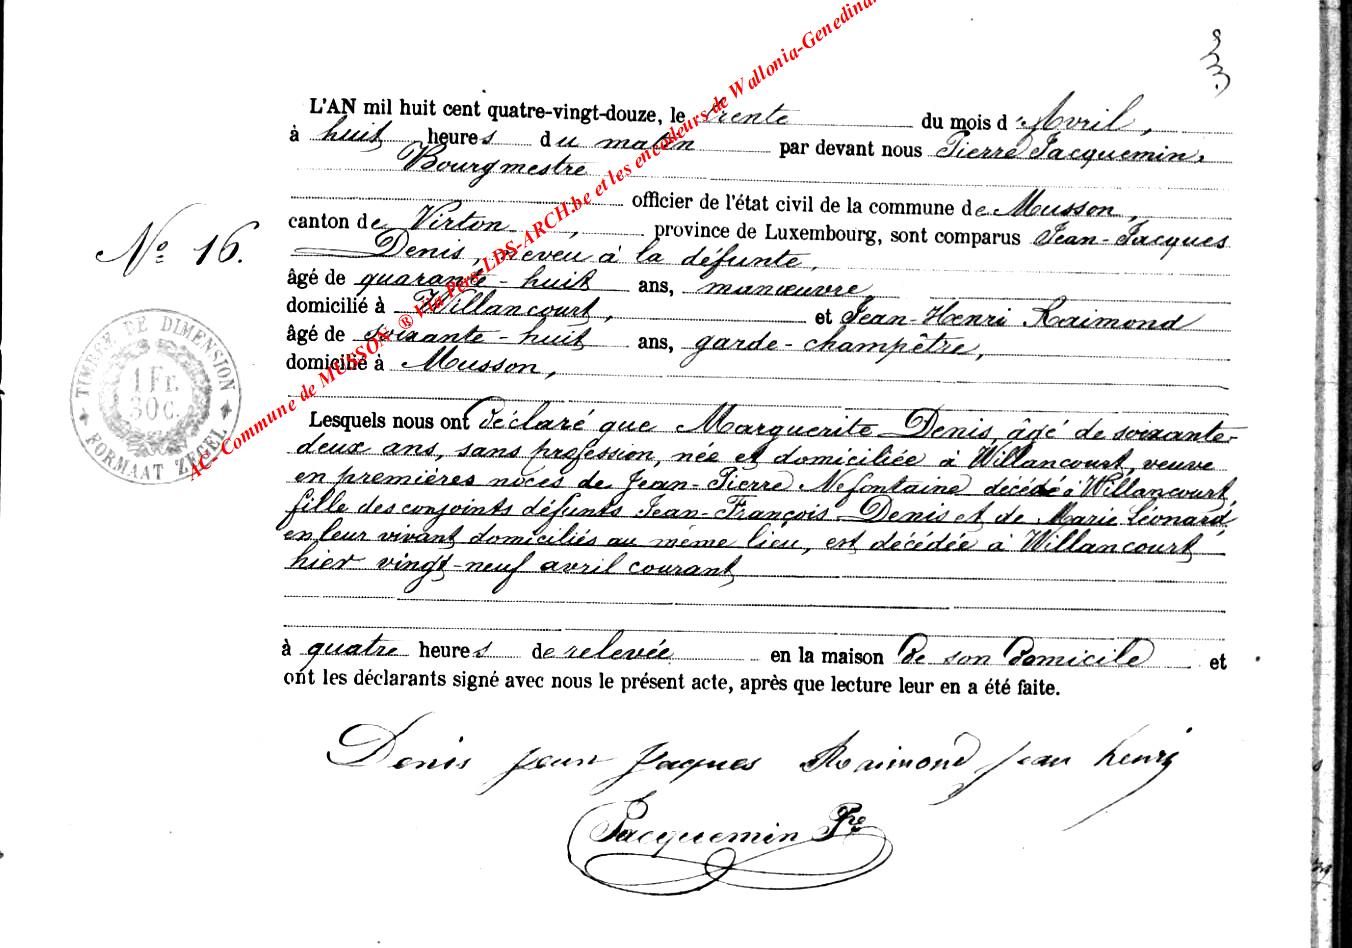 L'AN mil huit cent quatre-vingt-douze, le trente du mois d'Avril,
à huit heures du matin par devant nous Pierre Jacquemin,
Bourgmestre
officier de l'état civil de la commune de Musson,
canton de Virton, province de Luxembourg, sont comparus Jean-Jacques
Denis, neveu à la défunte,
âgé de quarante-huit ans, manœuvre
domicilié à Willancourt, et Jean-Henri Raimond
âgé de soixante-huit ans, garde-champêtre,
domicilié à Musson,
N° 16.
TIMBRE DE DIMENSION
1 Fr.
30 C.
FORMAAT ZEGEL
AC- Commune de MUSSON ® Via Pers-LDS-ARCH.be et les encodeurs de Wallonia-Genedina
Lesquels nous ont déclaré que Marguerite Denis, âgé de soixante-
deux ans, sans profession, née et domiciliée à Willancourt, veuve
en premières noces de Jean-Pierre Nefontaine décédé à Willancourt,
fille des conjoints défunts Jean-François Denis et de Marie Léonard,
en leur vivant domiciliés au même lieu, est décédée à Willancourt
hier vingt-neuf avril courant
à quatre heures de relevée en la maison de son domicile et
ont les déclarants signé avec nous le présent acte, après que lecture leur en a été faite.
Denis Jean Jacques Raimond Jean henri
Jacquemin Pre